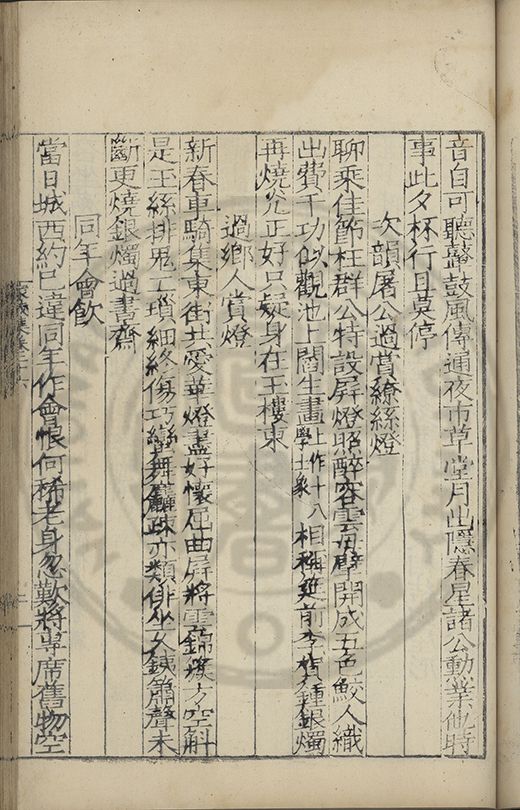 音自可聽鼕鼓風傳通夜市草堂月出隱春星諸公勳業他時
事此夕杯行且莫停
次韻屠公過賞繚絲燈
聊乘佳節枉群公特設屏燈照醉容雲母擘開成五色鮫人織
出費千功似觀池上閻生畫上作十八學士象相稱筵前李種銀燭
再燒光正好只疑身在玉樓東
過鄉人賞燈
新春車騎集東街共愛華燈盡好懷屈曲屏將雲錦方空斛
是玉絲排鬼工瑣細終傷巧蠻舞麤疎亦類俳坐久鐵簫聲未
斷更燒銀燭過書齋
同年會飲
當日城西約已違同年作會恨何稀老身忽歎將專席舊物空